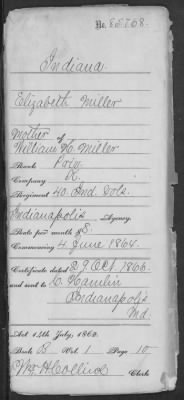 No. 85768.
Indiana
Elizabeth Miller
Mother of
William H. Miller
Rank Priv
Company K.
Regiment 40. Ind. Vols.
Indianapolis Agency.
Rate per month $8.
Commencing 4 June 1864.
Certificate dated 29 Oct. 1866.
and sent to C. Hamlin
Indianapolis
Ind.
Act 14th July, 1862.
Book B Vol. 1 Page 10
Wm H Collins Clerk